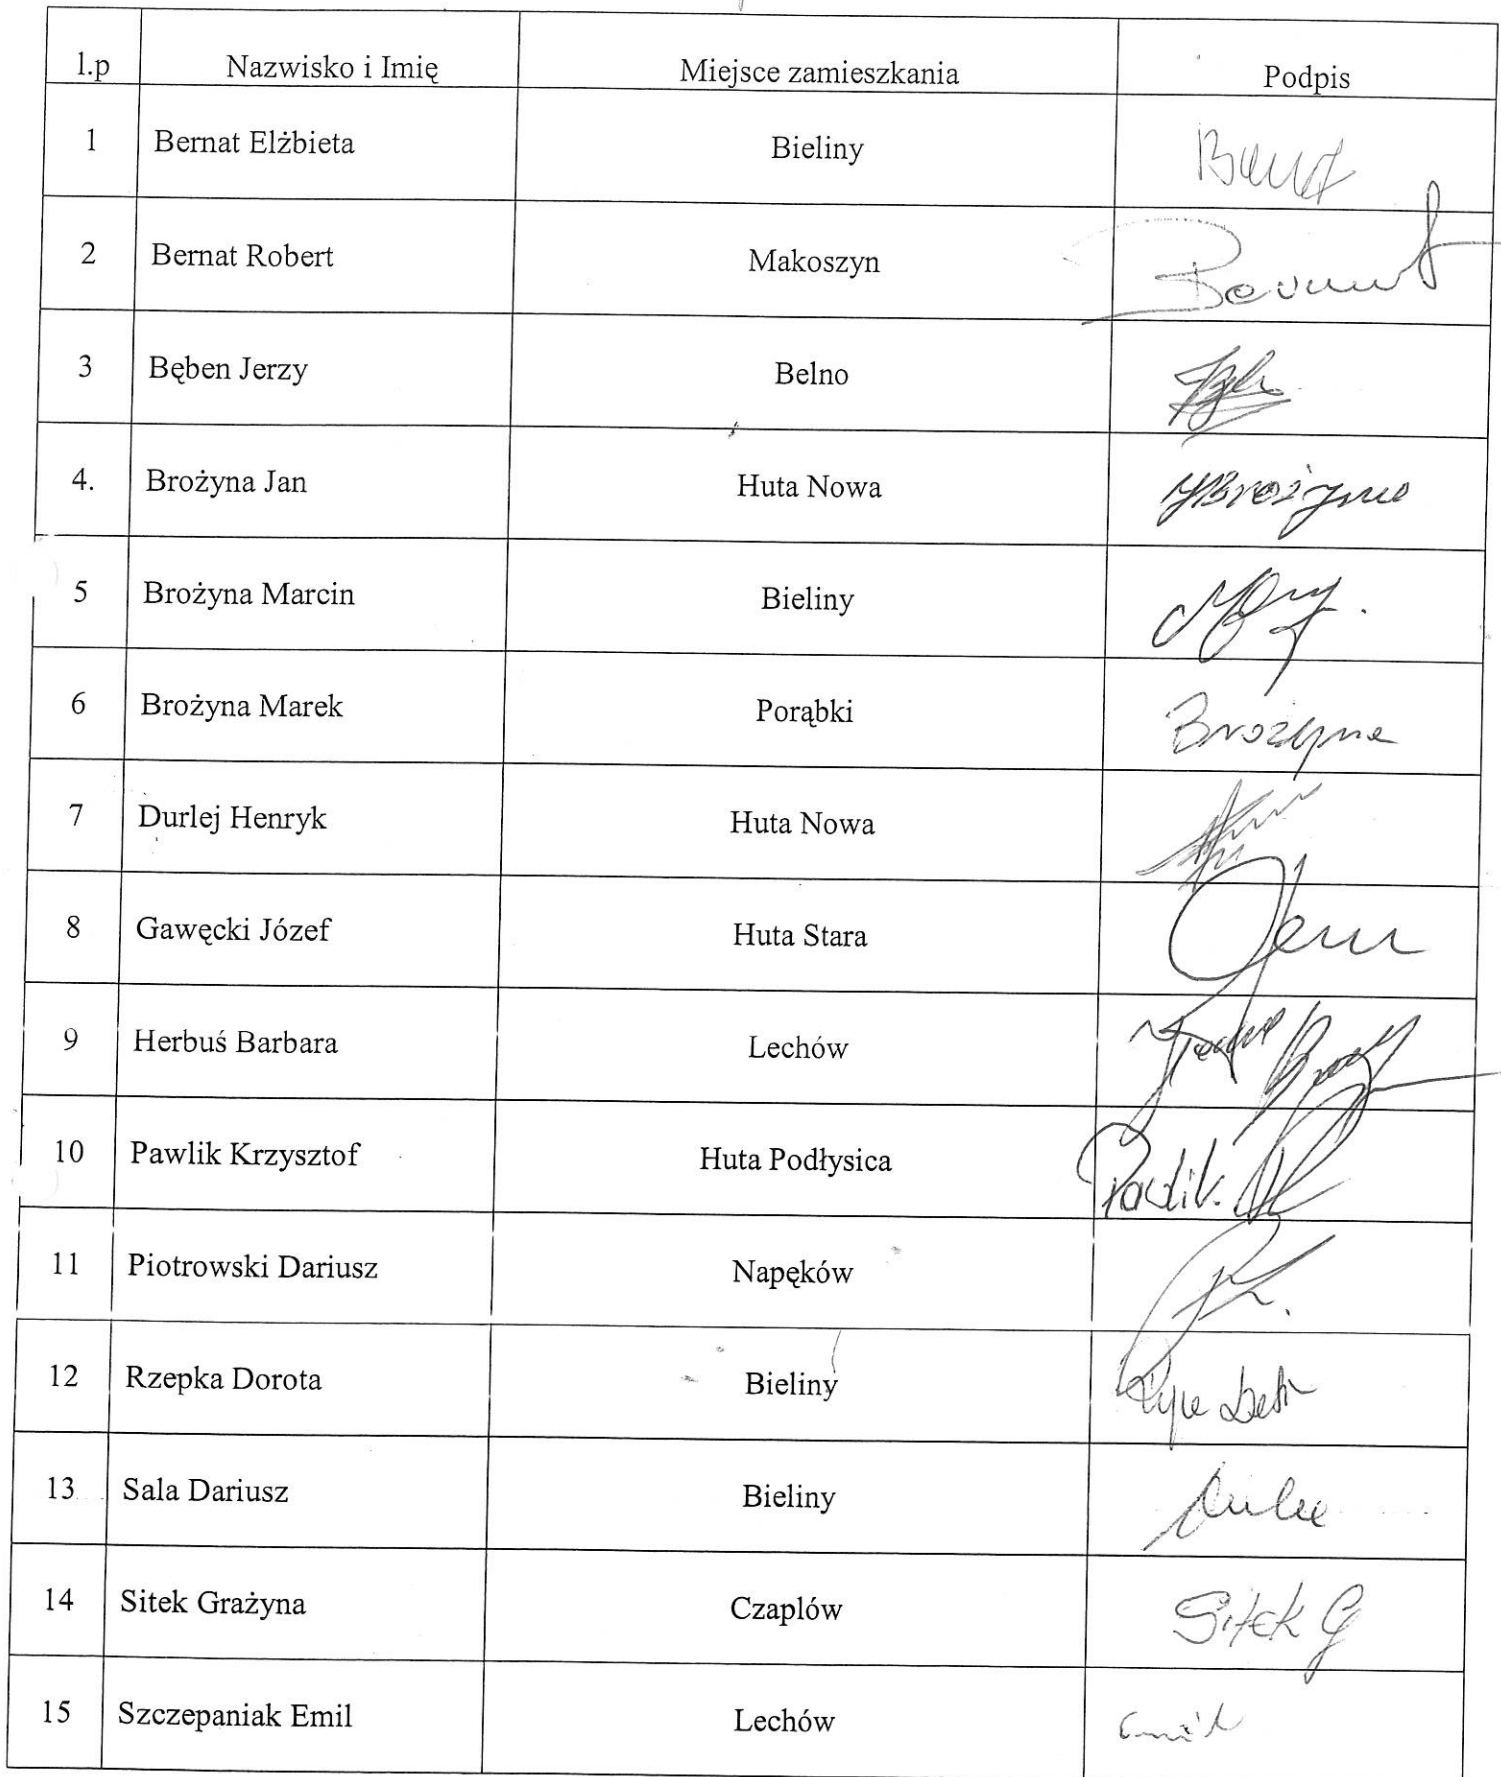 l.p Nazwisko i Imię Miejsce zamieszkania Podpis
1 Bernat Elżbieta Bieliny
2 Bernat Robert Makoszyn
3 Bęben Jerzy Belno
4. Brożyna Jan Huta Nowa
5 Brożyna Marcin Bieliny
6 Brożyna Marek Porąbki Brożyna
7 Durlej Henryk Huta Nowa
8 Gawęcki Józef Huta Stara
9 Herbuś Barbara Lechów
10 Pawlik Krzysztof Huta Podłysica Pawlik
11 Piotrowski Dariusz Napęków
12 Rzepka Dorota Bieliny
13 Sala Dariusz Bieliny
14 Sitek Grażyna Czaplów Sitek G
15 Szczepaniak Emil Lechów Emil